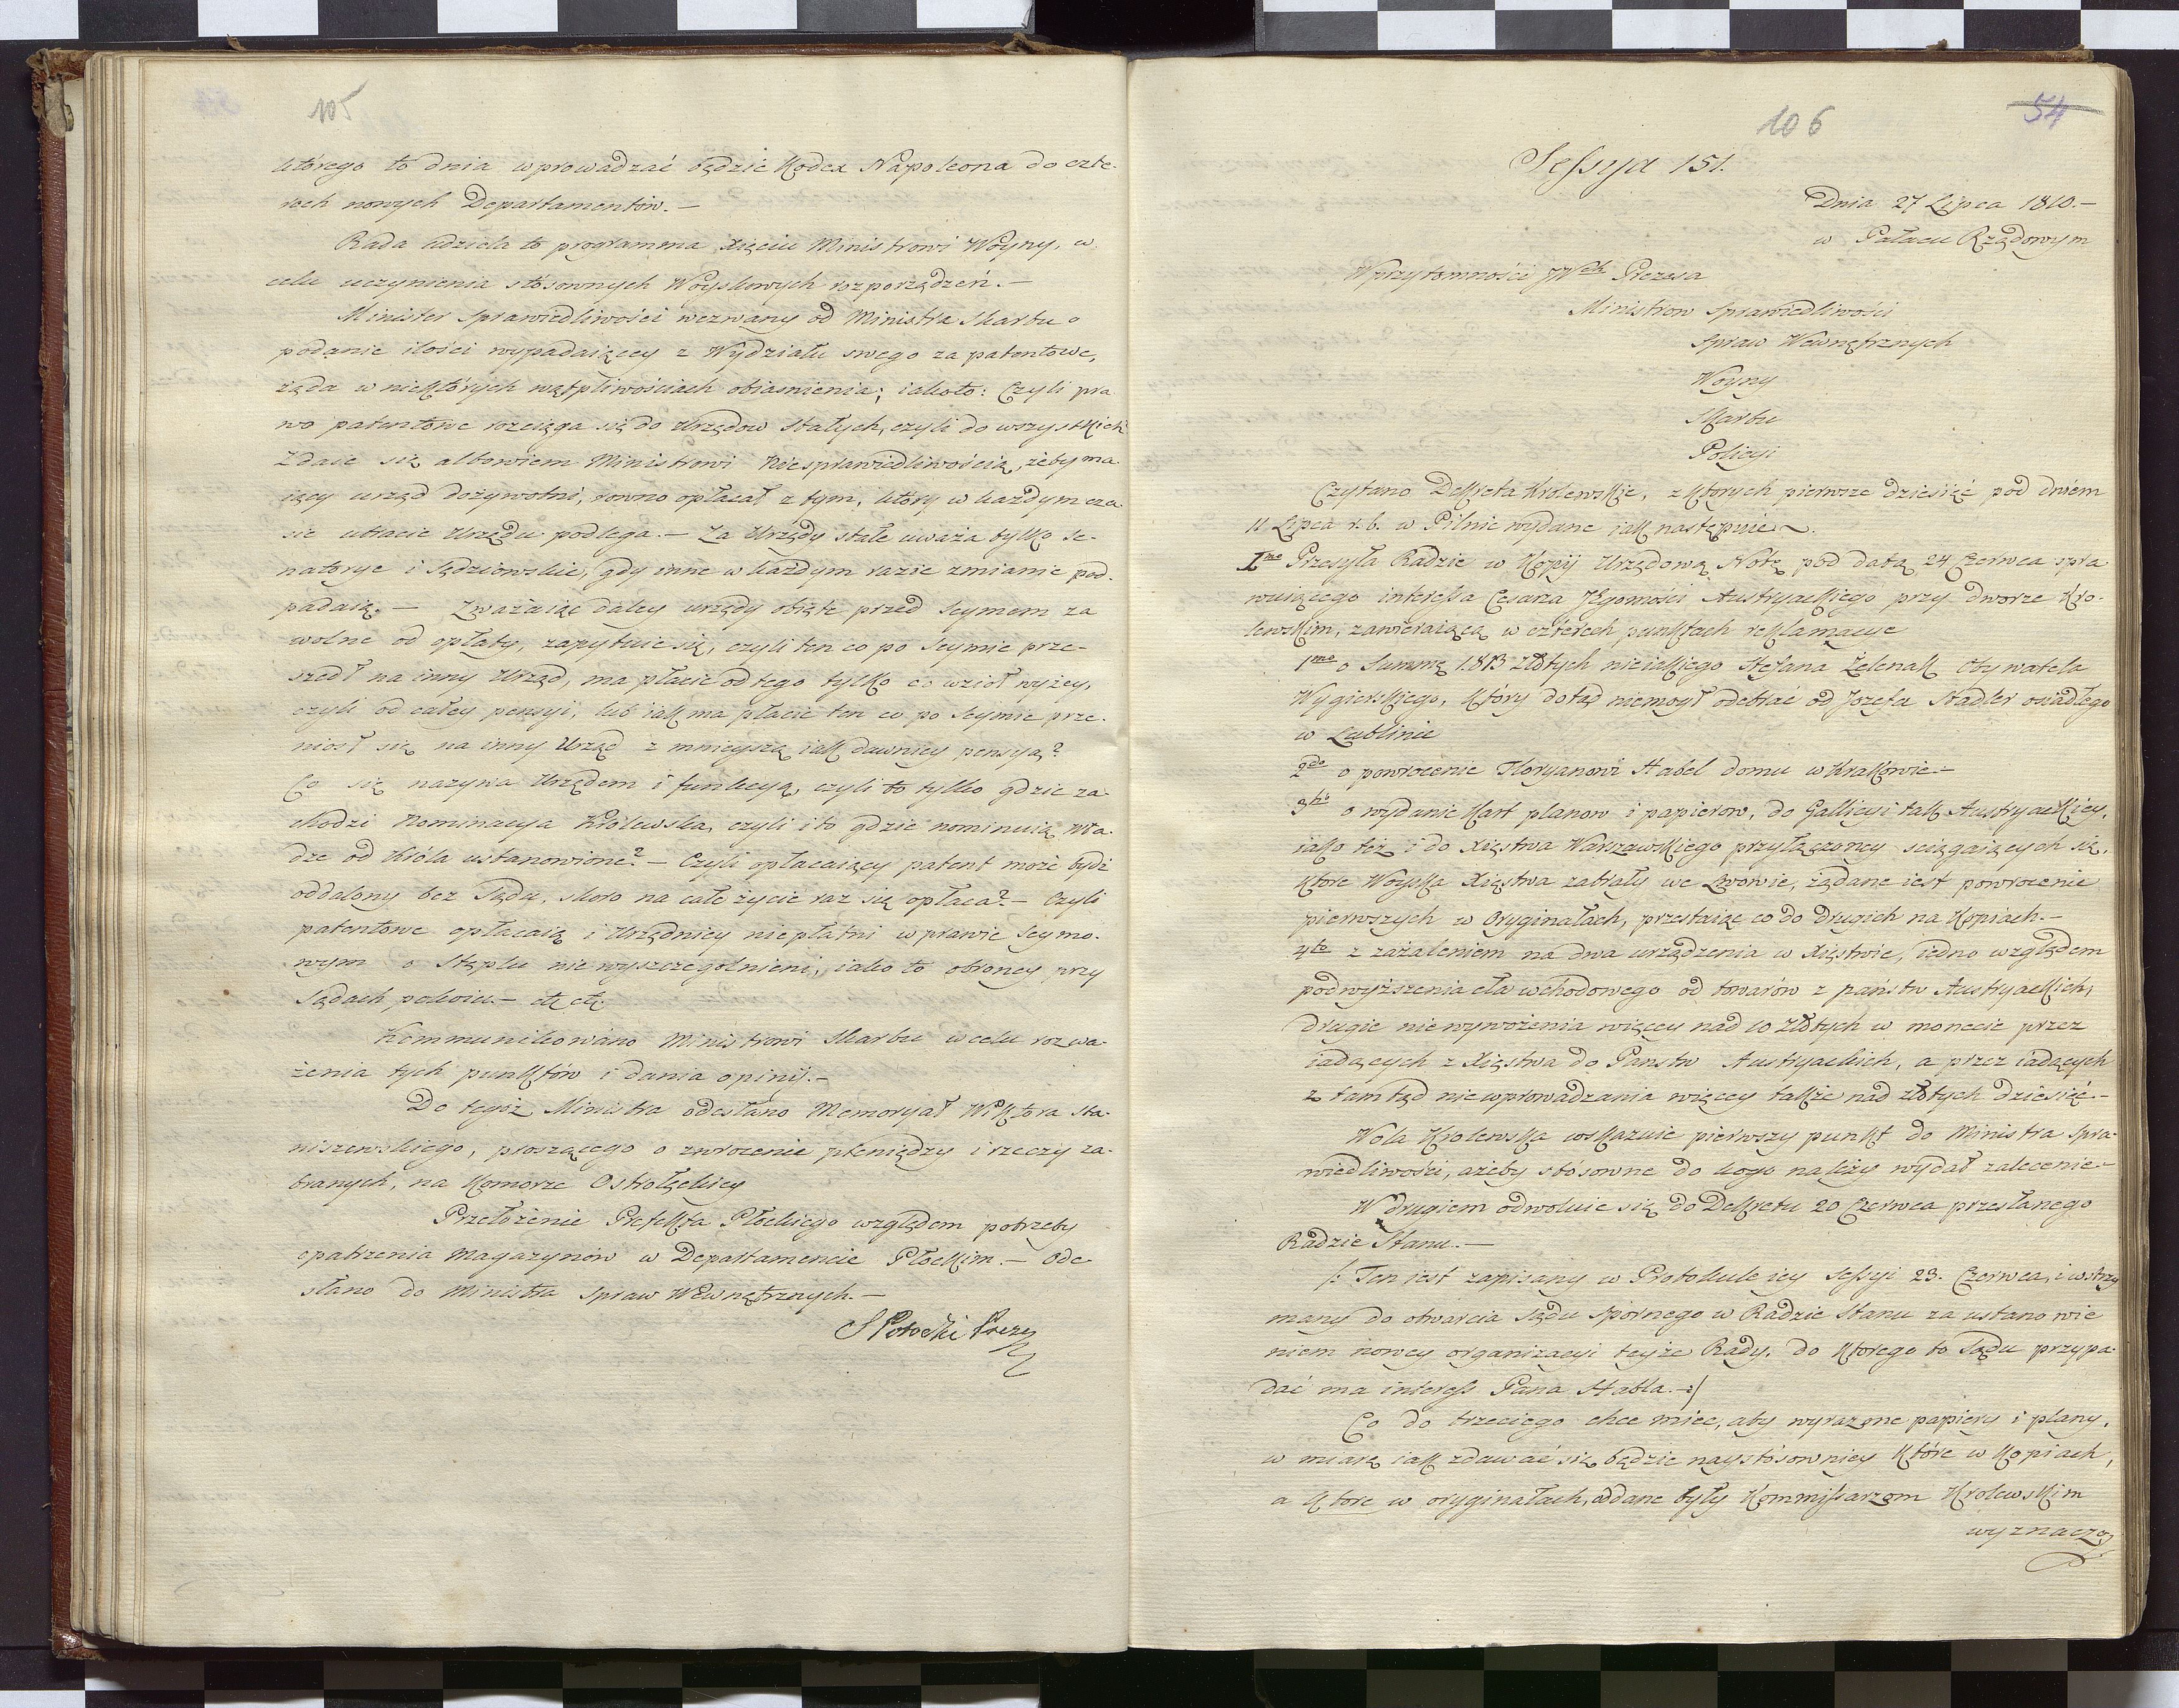 105
którego to dnia wprowadzać będzie Kodex Napoleona do czte-
rech nowych Departamentów.—
Rada udziela to programma Xięciu Ministrowi Woyny, w
celu uczynienia stósownych Woyskowych rozporządzeń.—
Minister Sprawiedliwości wezwany od Ministra Skarbu o
podanie ilości wypadaiącey z Wydziału swego za patentowe,
żąda w niektórych wątpliwościach obiasnienia; iakoto: Czyli pra
wo patentowe rozciąga się do Urzędow stałych, czyli do wszystkich
Zdaie się albowiem Ministrowi Niesprawiedliwością, żeby ma-
iący urząd dożywotni, rowno opłacał z tym, który w każdym cza-
sie utracie Urzędu podlega.— Za Urzędy stałe uważa tylko Se-
natorye i Sędziowskie, gdy inne w każdym razie zmianie pod-
padaią.— Zważaiąc daley urzędy obięte przed Seymem za
wolne od opłaty, zapytuie się, czyli ten co po Seymie prze-
szedł na inny Urząd, ma płacić od tego tylko co wziął wyżey,
czyli od całey pensyi, lub iak ma płacić ten co po Seymie prze-
niosł się na inny Urząd z mnieyszą iak dawniey pensyą?
Co się nazywa Urzędem i funkcyą, czyli to tylko gdzie za-
chodzi Nominacya Królewska, czyli i to gdzie nominuią Wła-
dze od Króla ustanowione?— Czyli opłacaiący patent może bydź
oddalony bez Sądu, skoro na całe życie raz się opłaca?— Czyli
patentowe opłacaią i Urzędnicy niepłatni w prawie Seymo-
wym o Stęplu nie wyszczegolnieni, iako to obroncy przy
Sądach pokoiu.— etc etc.
Kommunikowano Ministrowi Skarbu w celu rozwa-
żenia tych punktów i dania opinij.—
Do tegoż Ministra odesłano Memoryał Wiktora Sta-
niszewskiego, proszącego o zwrocenie pieniędzy i rzeczy za-
branych, na Komorze Ostrołęckiey
Przełożenie Prefekta Płockiego względem potrzeby
opatrzenia Magazynów w Departamencie Płockim.— Ode
słano do Ministra Spraw Wewnętrznych.—
S Potocki Prezes
106
54
Sessya 151.
Dnia 27 Lipca 1810.—
w Pałacu Rządowym
W przytomności JWch Prezesa
Ministrow Sprawiedliwości
Spraw Wewnętrznych
Woyny
Skarbu
Policyi
Czytano Dekreta Krolewskie, z ktorych pierwsze dziesięć pod dniem
11 Lipca r. b. w Pilnic wydane iak następuie.
1mo Przesyła Radzie w Kopij Urzędową Notę pod datą 24 Czerwca spra
wuiącego interessa Cesarza JEgomości Austryackiego przy dworze Kro-
lewskim, zawieraiącą w czterech punktach reklamacye
1mo o Summę 1813 Złotych nieiakiego Stefana Żelenak Obywatela
Węgierskiego, który dotąd niemogł odebrać od Jozefa Nadler osiadłego
w Lublinie
2do o powrocenie Floryanowi Habel domu w Krakowie.—
3tio o wydanie Kart planow i papierow, do Gallicyi tak Austryackiey,
iako też i do Xięstwa Warszawskiego przyłączoney sciągaiących się,
ktore Woyska Xięstwa zabrały we Lwowie, żądane iest powrocenie
pierwszych w Oryginałach, przestaiąc co do drugich na Kopiach.—
4to z zażaleniem na dwa urządzenia w Xięstwie, iedno względem
podwyższenia cła wchodowego od towarów z państw Austryackich,
drugie niewywożenia więcey nad 10 złotych w monecie przez
iadących z Xięstwa do Panstw Austryackich, a przez iadących
z tamtąd niewprowadzania więcey także nad złotych dziesięć.—
Wola Krolewska wskazuie pierwszy punkt do Ministra Spra-
wiedliwości, ażeby stósowne do kogo należy wydał zalecenie.—
W drugiem odwołuie się do Dekretu 20 Czerwca przesłanego
Radzie Stanu.—
/: Ten iest zapisany w Protokule iey Sessyi 23. Czerwca, i wstrzy
many do otwarcia Sądu Spornego w Radzie Stanu za ustanowie
niem nowey organizacyi teyże Rady, do ktorego to Sądu przypa-
dać ma interess Pana Habla.—:/
Co do trzeciego chce miec, aby wyrazone papiery i plany,
w miarę iak zdawać się będzie naystósowniey które w Kopiach,
a ktore w oryginałach, oddane były Kommissarzom Krolewskim
wyznaczo